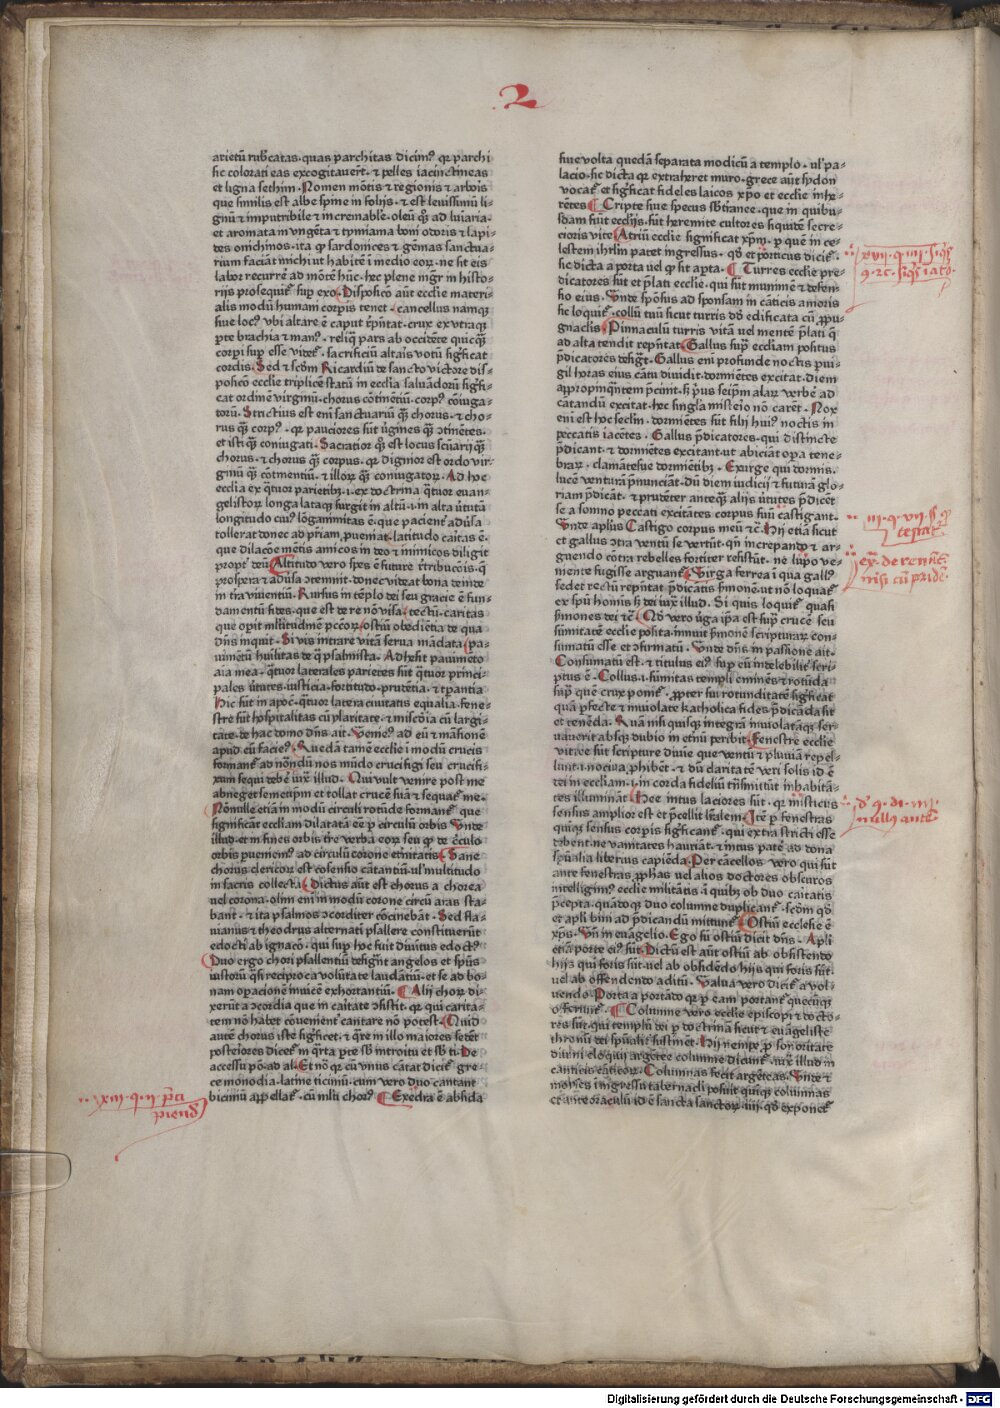 2
arietū rubricatas. quas parchitas dicim⁹ qꝛ parchi
sic colorati eas excogitauerūt. ⁊ pelles iacinctineas
et ligna sethim. Nomen mōtis ⁊ regionis ⁊ arboris
que similis est albe spine in folijs. ⁊ est leuissimū li-
gnū ⁊ imputribile ⁊ incremabile. oleū q̄ꝫ ad luiaria.
et aromata in vngēta ⁊ tymiama boni odoris ⁊ lapi-
des onichinos. ita ꝙ sardonices ⁊ gēmas sanctua-
rium faciāt michi ut habitē ī medio eoꝝ. ne sit eis
labor recurrē ad mōtem hūc. hec plene mgr̄ in histo-
rijs prosequit̄ sup̄ exo. Disposicō aūt ecclie materi-
alis modū humani corpis tenet. cancellus namqꝫ
siue loc⁹ vbi altare ē caput rep̄ntat. crux ex vtraqꝫ
ꝑte brachia ⁊ man⁹. reliq̄ pars ab occidēte quicq̄ꝫ
corpi supesse videt̄. sacrificiū altaris votū sig̅ficat
cordis. Sed ⁊ scdm Ricardū de sancto victore dis-
posicō ecclie triplicē statū in ecclia saluādorū sig̅fi-
cat ordinē virginū. chorus cōtinētiū. corp⁹ cōiuga-
torū. Strictius est enī sanctuariū q̄ꝫ chorus. ⁊ cho-
rus q̄ꝫ corp⁹. qꝛ pauciores sūt v̄gines q̄ꝫ ꝯtinētes.
et isti q̄ꝫ coniugati. Sacratior q̄ꝫ est locus sc̄uarij q̄ꝫ
chorus. ⁊ chorus q̄ꝫ corpus. qꝛ dignior est ordo vir-
ginū q̄ꝫ cōtinentiū. ⁊ illoꝝ q̄ꝫ coniugatoꝝ. Ad hec
ecclia ex q̄tuor parietibꝫ .i. ex doctrina q̄tuor euan-
gelistoꝝ longa lataqꝫ surgit in altū .i. in alta v̄tutū
longitudo eius lōganimitas ē. que pacient̄ adūsa
tollerat donec ad pr̄iam pueniat. latitudo caitas ē.
que dilacōe mētis amicos in deo ⁊ inimicos diligit
propt̄ deū. Altitudo vero spes ē future rētribucōis. q̄
prospera ⁊ adūsa ꝯtemnit. donec videat bona domini
in t̄ra viuentiū. Rursus in tēplo dei seu gracie ē fun-
damentū fides. que est de re nō visa. tectū. caritas
que opit mltitudinē pccōꝝ. ostiū obediētia de qua
dn̄s inquit. Si vis intrare vitā serua mādata. pa-
uimētū huilitas de q̄ psalmista. Adhesit pauimēto
aīa mea. q̄tuor laterales parietes sūt q̄tuor princi-
pales v̄tutes. iusticia. fortitudo. prudētia. ⁊ tpantia
Hec sūt in apoc. q̄tuor latera ciuitatis equalia. fene-
stre sūt hospitalitas cū ylaritate. ⁊ miscōia cū largi-
tate. de hac domo dn̄s ait. Veniem⁹ ad eū ⁊ māsionē
apud eū faciem⁹. Quedā tamē ecclie ī modū crucis
formant̄ ad nōndū nos mūdo crucifigi seu crucifi-
xum sequi debē iux̄ illud. Qui vult venire post me
abneget semetip̄m et tollat crucē suā ⁊ sequat̄ me.
Nōnulle etiā in modū circuli rotūde formant̄ que
significant eccliam dilatatā eē ꝑ circulū orbis. Vnde
illud. et in fines orbis tr̄e verba eoꝝ. seu ꝙ de c̄rculo
orbis pueniem⁹ ad circulū corone etn̄itatis. Sane
chorus clericoꝝ est cōsensio cātantiū. ul' multitudo
in sacris collecta. Dictus aūt est chorus a chorea
uel corona. olim enī in modū corone circū aras sta-
bant. ⁊ ita psalmos ꝯcorditer cōcinebāt. Sed fla-
uianus ⁊ theodrus alternati psallere constituerūt
edocti ab ignacō. qui sup̄ hoc fuit diuinitus edoct⁹
Duo ergo chori psallentiū desigt̄nt angelos et spūs
iustorū. q̄si reciproca volūtate laudātiū. et se ad bo-
nam opacionē inuicē exhortantiū. Alij chorū di-
xerūt a ꝯcordia que in caitate ꝯsistit. qꝛ qui carita-
tem nō habet cōuenient̄ cantare nō potest. Quid
autē chorus iste sig̅ficet. ⁊ q̄re in illo maiores sedēt
posteriores dicet̄ in q̄rta pte sb̄ introitu et sb̄ ti. De
accessu pō. ad al. Et nō ꝙ cū vnus cātat dicit̄ gre-
ce monodia. latine ticiniū. cum vero duo cantant
biciniū appellat̄. cū mlti chor⁹. Exedra ē absida
siue volta quedā separata modicū a templo. ul' pa-
lacio. sic dicta ꝙ extra hereret muro. grece aūt sydon
vocat̄ et sig̅ficat fideles laicos xpo et ecclie inhe-
rētes. Cripte siue specus subtranee. que in quibu-
sdam fiūt ecclijs. sūt heremite cultores siquidē secre-
cioris vite. Atriū ecclie significat xp̄m. ꝑ quē in ce-
lestem ihrl̄m patet ingressus. qd̄ et porticus dicit̄.
sic dicta a porta uel ꝙ sit apta. Turres ecclie pre-
dicatores sūt et p̄lati ecclie. qui sūt munimē ⁊ defen-
sio eius. Vnde spōsus ad sponsam in cāticis amoris
sic loquit̄. collū tuū sicut turris dd̄ edificata cū ꝓpu-
gnaclis. Pinnaculū turris vitā uel mentē p̄lati q̄
ad alta tendit rep̄ntat. Gallus sup̄ eccliam positus
p̄dicatores desigt̄. Gallus enī profunde noctis puī-
gil horas eius cātu diuidit. dormiētes excitat. diem
appropinq̄ntem p̄cinit. sꝫ p̄us seip̄m alaꝝ verbē ad
catandū excitat. hec singl̄a misterio nō carēt. Nox
enī est hoc seclm. dormiētes sūt filij hui⁹ noctis in
peccatis iacētes. Gallus p̄dicatores. qui distincte
p̄dicant. ⁊ dormiētes excitant. ut abiciāt opa tene-
braꝝ. clamātes ue dormiētibꝫ. Exurge qui dormis.
lucē venturā p̄nunciat. dū diem iudicij ⁊ futurā glo-
riam p̄dicāt. ⁊ prudēter anteq̄ꝫ alijs v̄tutes p̄dicēt
se a somno peccati excitātes corpus suū castigant.
Vnde aplūs Castigo corpus meū ⁊c̄. Hij etiā sicut
et gallus ꝯtra ventū se vertūt. qn̄ increpando ⁊ ar-
guendo cōtra rebelles fortiter resistūt. ne lupo ve-
niente fugisse arguant̄. Virga ferrea ī qua gall⁹
sedet rectū rep̄ntat p̄dicātis s̄monē. ut nō loquat̄
ex spū hominis sꝫ dei iux̄ illud. Si quis loquit̄ quasi
s̄mones dei ⁊c̄. Qd̄ vero v̄ga ip̄a est sup̄ crucē seu
sūmitatē ecclie posita. innuit s̄monē scripturaꝝ con-
sumatū esse et ꝯfirmatū. Vnde dn̄s in passione ait.
Consumatū est. ⁊ titulus ei⁹ sup̄ eū indelebilit̄ scri-
ptus ē. Collus .i. sūmitas templi eminēs ⁊ rotūda
sup̄ quē crux ponit̄. propter sui rotunditatē sig̅ficat
quā pfecte ⁊ inuiolate katholica fides p̄dicāda sit
et tenēda. Quā nisi quisqꝫ integrā inuiolatāqꝫ ser-
uauerit absqꝫ dubio in et̄nū peribit. Fenestre ecclie
vitree sūt scripture diuine que ventū ⁊ pluuiā repel-
lunt .i. nociua ꝓhibēt. ⁊ dū claritatē veri solis id ē
dei in eccliam .i. in corda fideliū tn̄smittūt inhabitā-
tes illumināt. Hee intus laciores sūt. qꝛ misticus
sensus amplior est et p̄cellit lr̄alem. Itē ꝑ fenestras
quiqꝫ sensus corpis sig̅ficant̄. qui extra stricti esse
debent. ne vanitates hauriāt. ⁊ intus patē ad dona
spūalia liberius capiēda. Per cācellos vero qui sūt
ante fenestras ꝓphas uel alios doctores obscuros
intelligim⁹ ecclie militātis ī quibꝫ ob duo caitatis
p̄cepta. quādoqꝫ duo columne duplicant̄. scdm qd̄
et apli bini ad p̄dicandū mittunt̄. Ostiū ecclesie ē
xps. Vn̄ in euāgelio. Ego sū ostiū dicit dn̄s. Apli
etiā porte ei⁹ sūt. Dictū est aūt ostiū ab obsistendo
hijs qui foris sūt. uel ab ostēdēdo hijs qui foris sūt.
uel ab offendendo aditū. Valua vero dicit̄ a vol-
uendo. Porta a portādo qꝛ ꝑ eam portant̄ quecūqꝫ
offerunt̄. Columne vero ecclie episcopi ⁊ docto-
res sūt. qui templū dei ꝑ doctrinā sicut ⁊ euāgeliste
thronū dei spūalit̄ sustinēt. Hij nempe ꝓ sonoritate
diuini eloquij argētee columne dicunt̄. iux̄ illud in
canticis cāticoꝝ. Columnas fecit argēteas. Vnde ⁊
moyses ingressu tabernacli posuit quīqꝫ columnas
et ante oraculū id ē sancta sanctoꝝ .iiij. qd̄ exponet̄